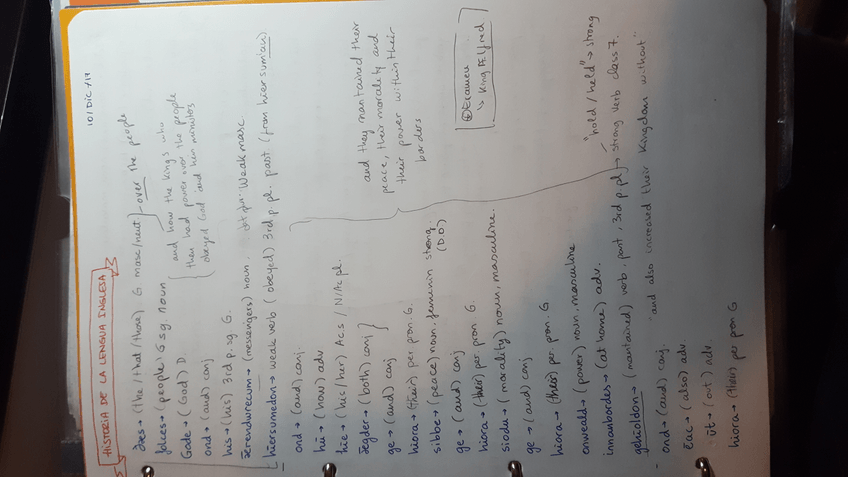 10/DIC/19
HISTORIA DE LA LENGUA INGLESA
ðæs → (the/that/those) G masc/neut } over the people
folces → (people) G sg noun
{ and how the kings who
then had power over the people
obeyed God and her minutos
Gode → (God) D
ond → (and) conj
his → (his) 3rd p. sg G.
ǣrendwrecum → (messengers) noun. Weak masc
hiersumedon → weak verb (obeyed) 3rd p pl. past (from hiersumian)
ond → (and) conj.
hū → (how) adv
hie → (his/her) Ac.s / N/Ac pl.
ǣgder → (both) conj }
ge → (and) conj
hiora → (their) per pron G.
sibbe → (peace) noun. feminin strong.
(DO)
ge → (and) conj
hiora → (their) per pron G.
siodu → (morality) noun, masculine.
ge → (and) conj
hiora → (their) per pron. G
onweald → (power) noun, masculine
innanbordes → (at home) adv.
gehioldon → (mantained) verb. past, 3rd p. pl → strong verb class 7.
"hold/held" → strong
and they mantained their
peace, their morality and
their power within their
borders
Examen
↳ King Ælfred
"and also increased their Kingdom without"
- ond → (and) conj.
Eac → (also) adv
ūt → (out) adv.
hiora → (their) per pron G